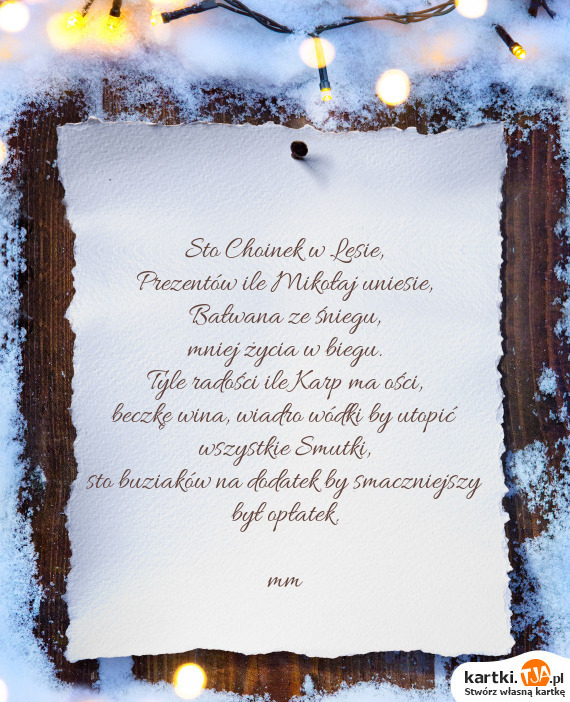 Sto Choinek w Lesie,
Prezentów ile Mikołaj uniesie,
Bałwana ze śniegu,
mniej życia w biegu.
Tyle radości ile Karp ma ości,
beczkę wina, wiadro wódki by utopić
wszystkie Smutki,
sto buziaków na dodatek by smaczniejszy
był opłatek.
mm
kartki.TJA.pl
Stwórz własną kartkę